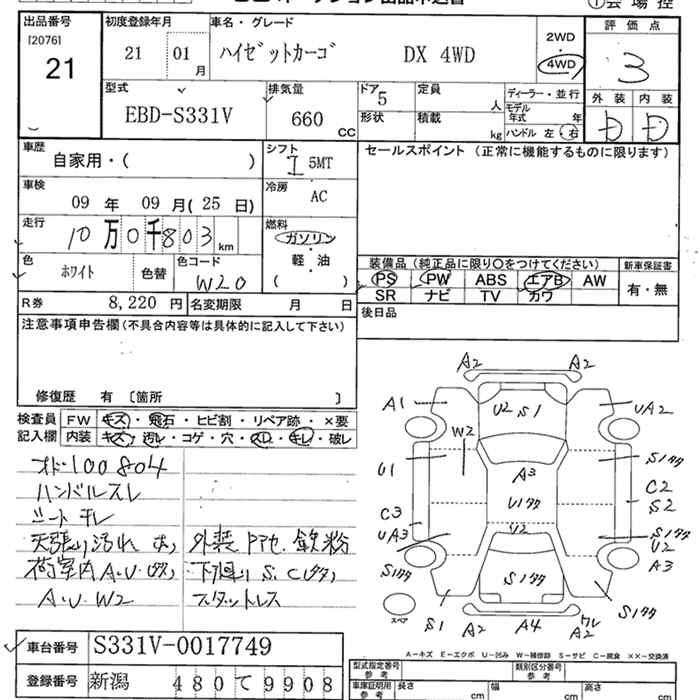 出品番号
[2076]
21
初度登録年月
21 01 月
車名・グレード
ハイゼットカーゴ DX 4WD
2WD
4WD
評価点
3
外装 内装
D D
型式
EBD-S331V
排気量
660 CC
ドア
5
形状
定員
人
積載
kg
ディーラー・並行
モデル
年式 年
ハンドル 左・右
車歴
自家用・( )
シフト
I 5MT
セールスポイント (正常に機能するものに限ります)
車検
09 年 09 月( 25 日)
冷房
AC
走行
10 万 0 千 8 0 3 km
燃料
ガソリン
軽・油
( )
色
ホワイト
色替
色コード
W20
装備品 (純正品に限り〇をつけてください)
PS PW ABS エアB AW
SR ナビ TV カワ
新車保証書
有・無
R券 8,220 円
名変期限 月 日
後日品
注意事項申告欄 (不具合内容等は具体的に記入して下さい)
修復歴 有 〔箇所 〕
検査員
記入欄
FW キズ・飛石・ヒビ割・リペア跡・×要
内装 キズ・汚レ・コゲ・穴・スレ・キレ・破レ
オド100804
ハンドルスレ
シートキレ
天張り汚れ 大
荷室内 A.U.
A.U W2
外装 鉄粉
下廻り S.C
スタットレス
A2 A2
A1 U2 S1 UA2
W2
U1 A3 S1
U1 C2
S2
C3
UA3 U2
U2
A3
S1
S1 A2 A4 A2
スペア
A-キズ E-エクボ U-凹み W-補修跡 S-サビ C-腐食 XX-交換済
車台番号 S331V-0017749
登録番号 新潟 480 て 9908
型式指定番号
参考
類別区分番号
参考
車庫証明用
参考
長さ 幅 高さ